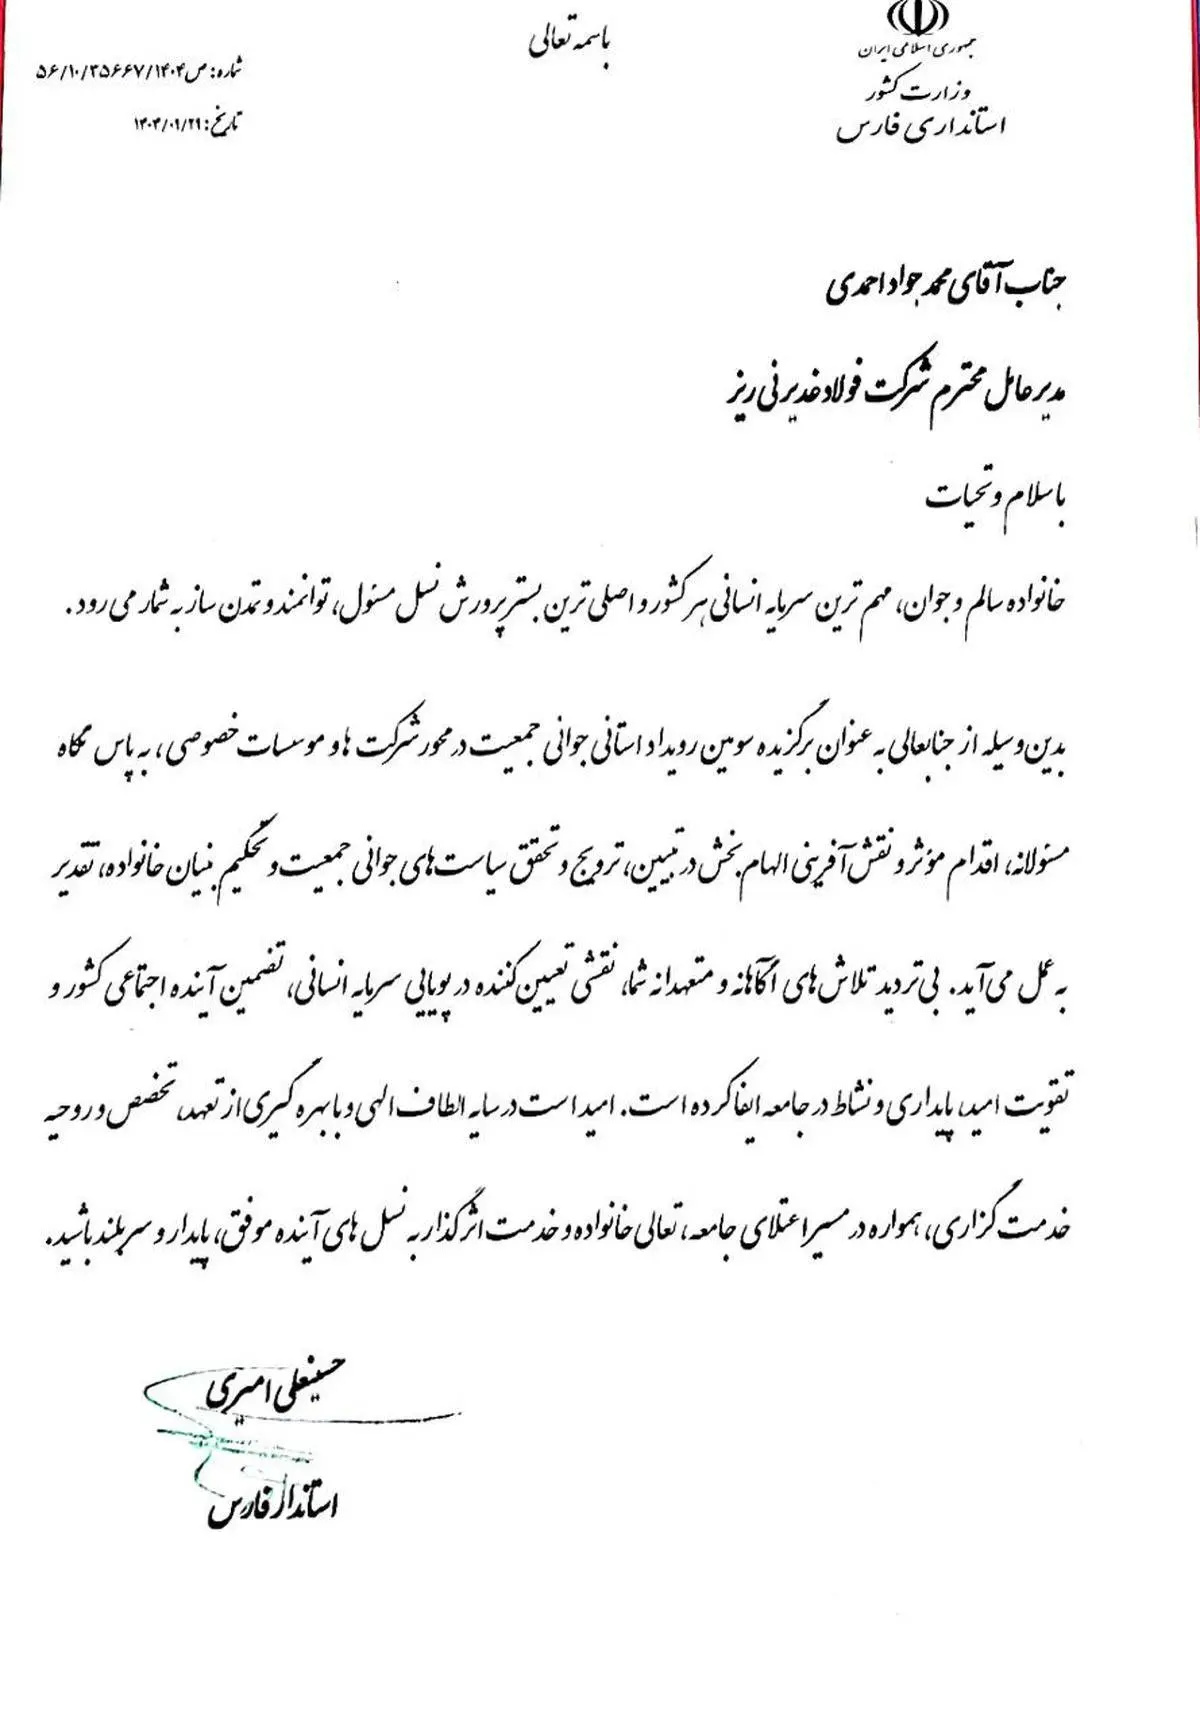 باسمه تعالی
جمهوری اسلامی ایران
وزارت کشور
استانداری فارس
شماره: ص۵۶/۱۰/۳۵۶۶۷/۱۴۰۴
تاریخ: ۱۴۰۴/۰۹/۲۹
جناب آقای محمد جواد احمدی
مدیر عامل محترم شرکت فولاد غدیر نی ریز
با سلام و تحیات
خانواده سالم و جوان، مهم ترین سرمایه انسانی هر کشور و اصلی ترین بستر پرورش نسل مسئول، توانمند و تمدن ساز به شمار می رود.
بدین وسیله از جنابعالی به عنوان برگزیده سومین رویداد استانی جوانی جمعیت در محور شرکت ها و موسسات خصوصی، به پاس نگاه
مسئولانه، اقدام مؤثر و نقش آفرینی الهام بخش در تبیین، ترویج و تحقق سیاست های جوانی جمعیت و تحکیم بنیان خانواده، تقدیر
به عمل می آید. بی تردید تلاش های آگاهانه و متعهدانه شما، نقشی تعیین کننده در پویایی سرمایه انسانی، تضمین آینده اجتماعی کشور و
تقویت امید، پایداری و نشاط در جامعه ایفا کرده است. امید است در سایه الطاف الهی و با بهره گیری از تعهد، تخصص و روحیه
خدمت گزاری، همواره در مسیر اعتلای جامعه، تعالی خانواده و خدمت اثرگذار به نسل های آینده موفق، پایدار و سربلند باشید.
حسینعلی امیری
استاندار فارس